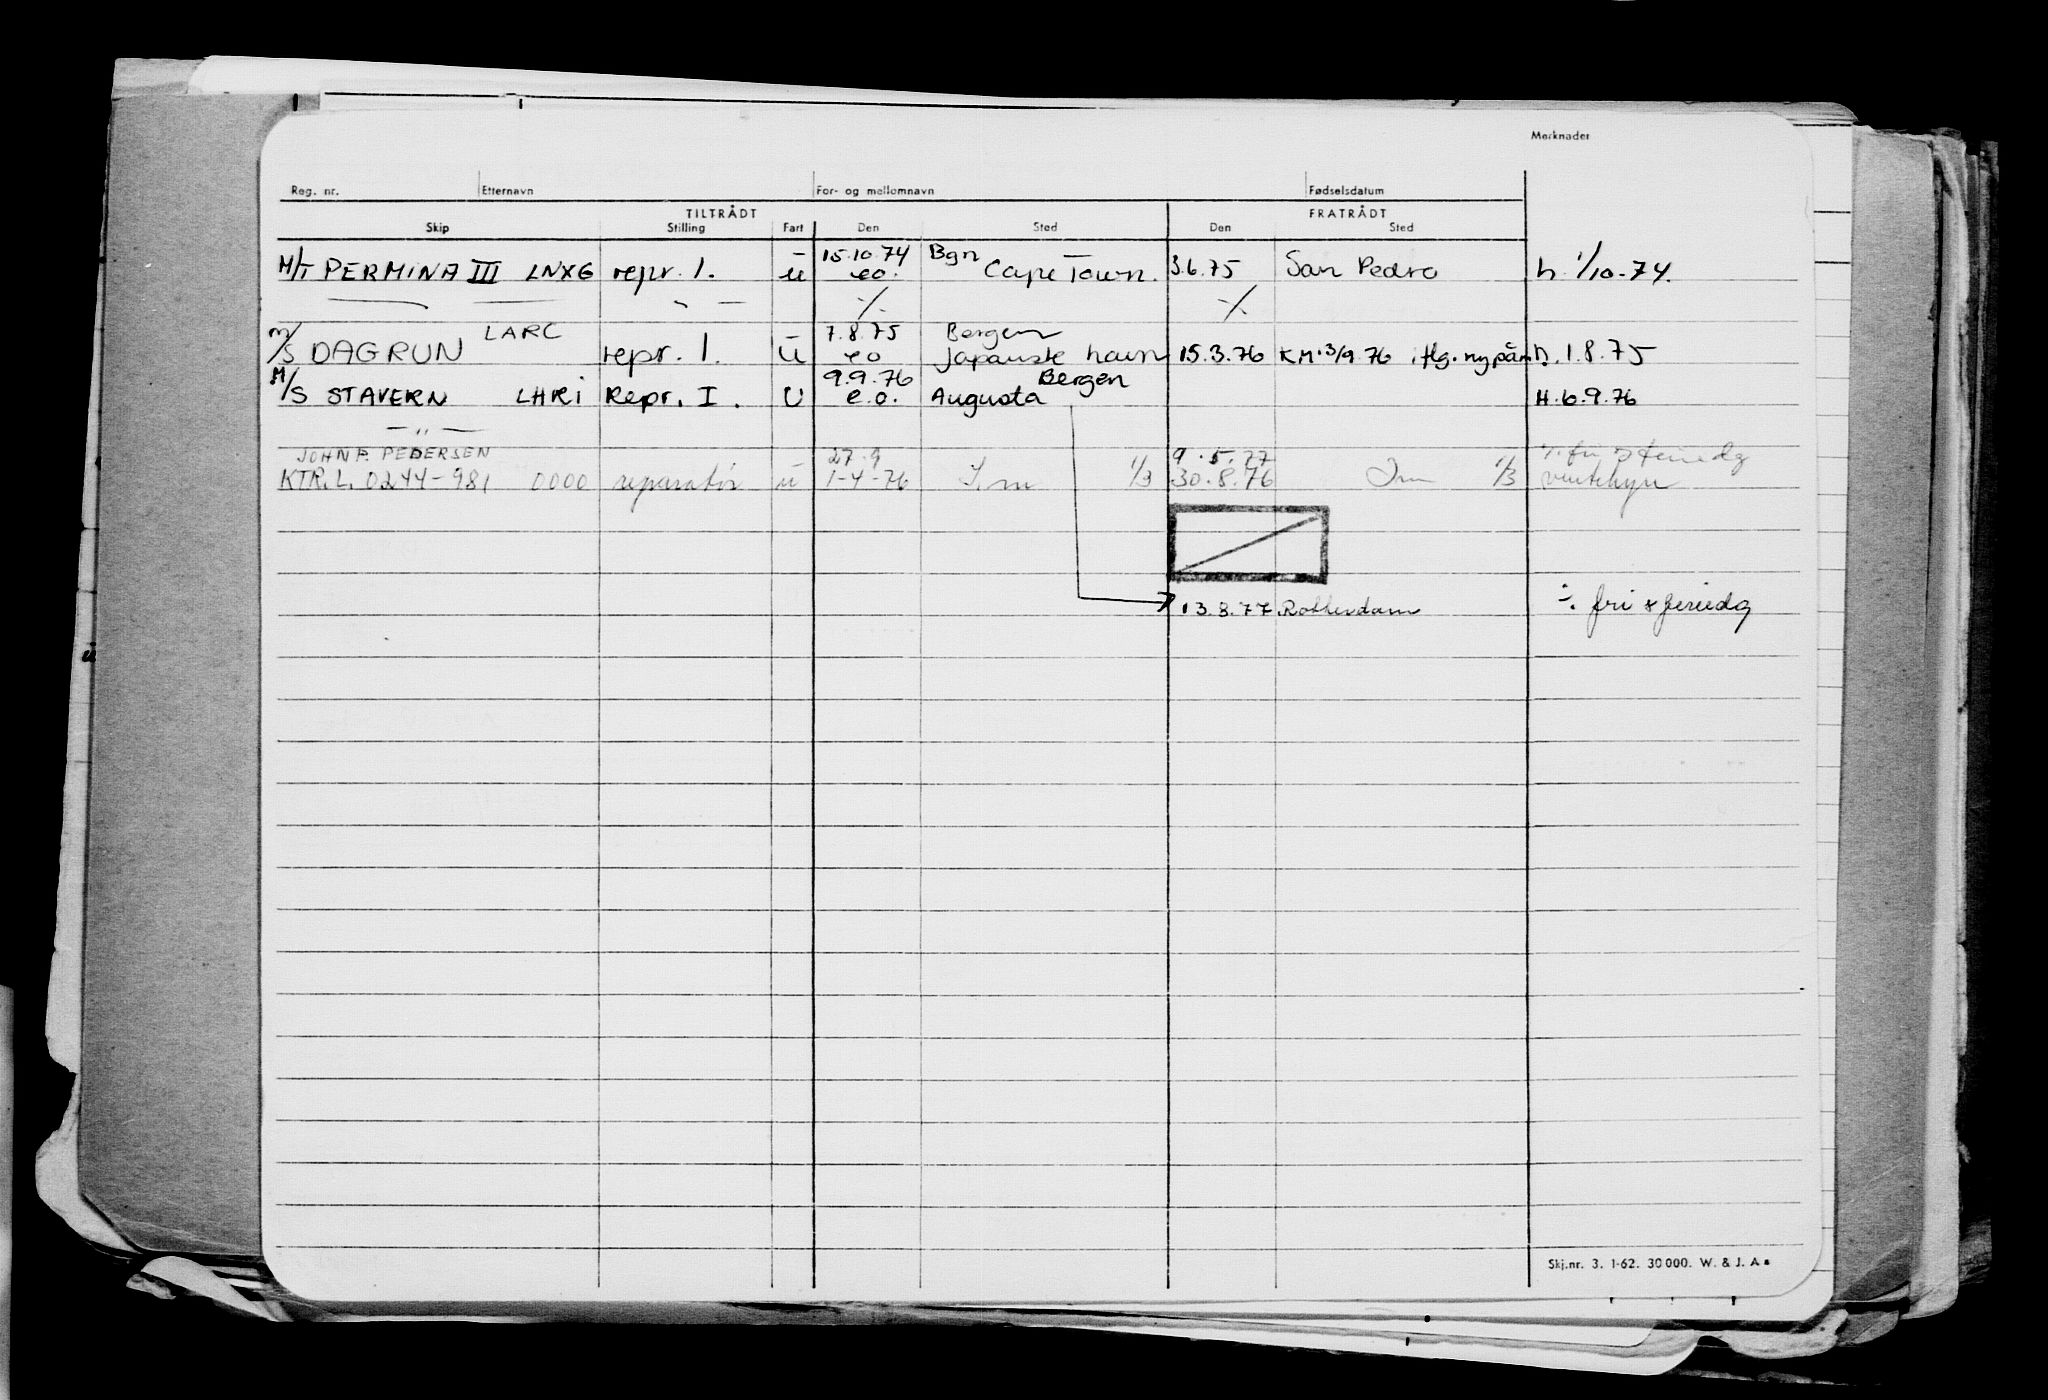 Merknader
Reg. nr. Etternavn For- og mellomnavn Fødselsdatum
TILTRÅDT FRATRÅDT
Skip Stilling Fart Den Sted Den Sted
15.10.74 Bgn
M/T PERMINA III LNXG repr. 1. ü eo. Cape Town. 3.6.75 San Pedro h. 1/10-74.
— — - — ·/. ·/.
LARC 7.8.75 Bergen
m/s DAGRUN repr. 1. ü eo Japanske havn 15.3.76 KM. 3/9.76 h. 1.8.75
9.9.76 Bergen
M/S STAVERN LHRI Repr. I. U e.o. Augusta H.6.9.76
— " —
JOHN P. PEDERSEN 27.9 9.5.77
KTR.L. 0244-981 0000 reparatør ü 1-4-76 1/3 30.8.76 1/3
13.8.77 Rotterdam ÷ fri & feriedg
ü
Skj.nr. 3. 1-62. 30000. W. & J. A s